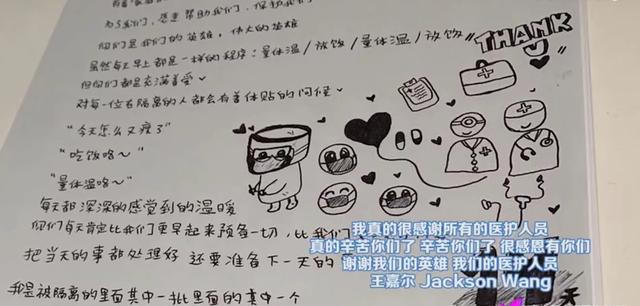 为了我们, 愿意帮助我们, 保护我们
你们是我们的英雄, 伟大的英雄
虽然每天早上都是一样的程序：量体温/放饭/量体温/放饭
但你们都是充满着爱
对每一位在隔离的人都会有着体贴的问候
THANK U
“今天怎么又瘦了”
“吃饭咯~”
“量体温咯~”
每天都深深的感觉到的温暖
你们每天肯定比我们更早起来预备一切, 比我们
把当天的事都处理好 还要准备下一天的
我是被隔离的里面其中一批里面的其中一个
我真的很感谢所有的医护人员
真的辛苦你们了 辛苦你们了 很感恩有你们
谢谢我们的英雄 我们的医护人员
王嘉尔 Jackson Wang